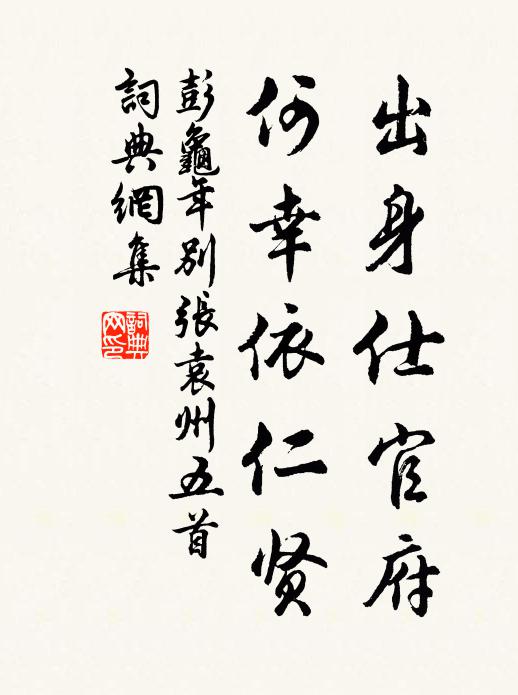 出身仕官府
何幸依仁贤
彭龜年别張袁州五首
詞典網集
詞典网印